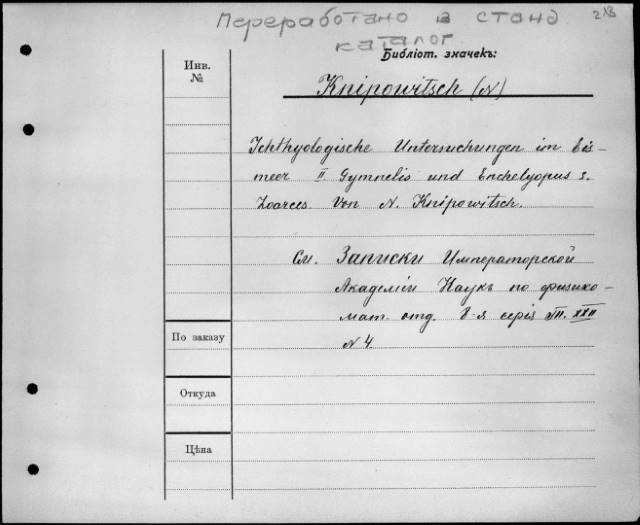 Переработано в станд
каталог
Библіот. значекъ:
Инв.
№
Knipowitsch (N)
Ichthyologische Untersuchungen im Eis-
meer II Gymnelis und Enchelyopus s.
Zoarces. Von N. Knipowitsch.
См. Записки Императорской
Академіи Наукъ по физико-
мат. отд. 8-я серія XXII
N 4
По заказу
Откуда
Цѣна